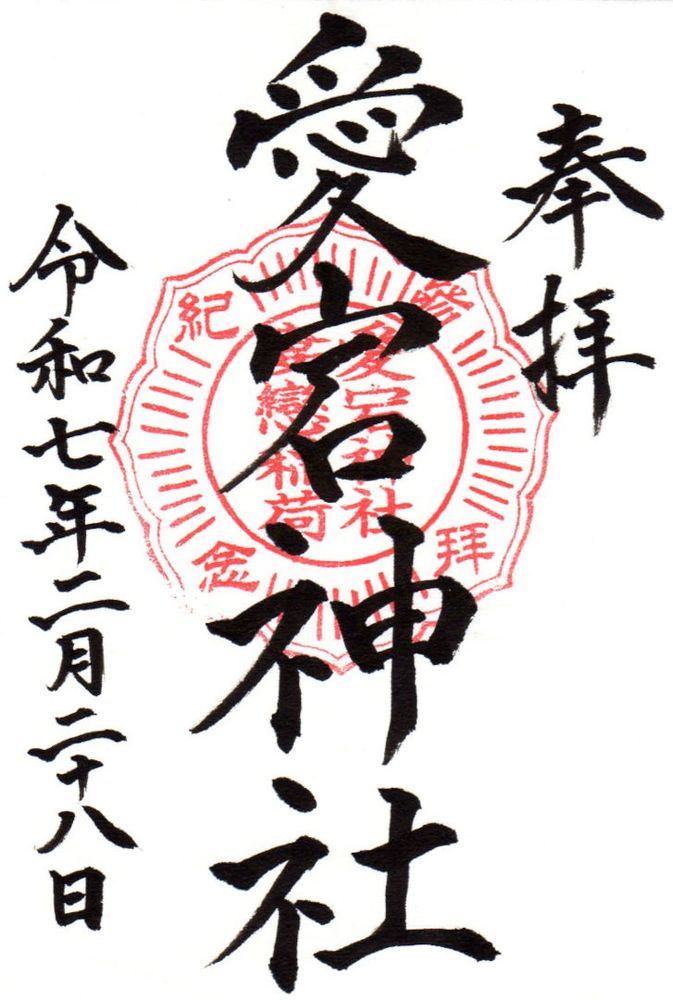 奉拝
愛宕神社
令和七年二月二十八日
參拝
紀念
愛宕神社
戀稲荷